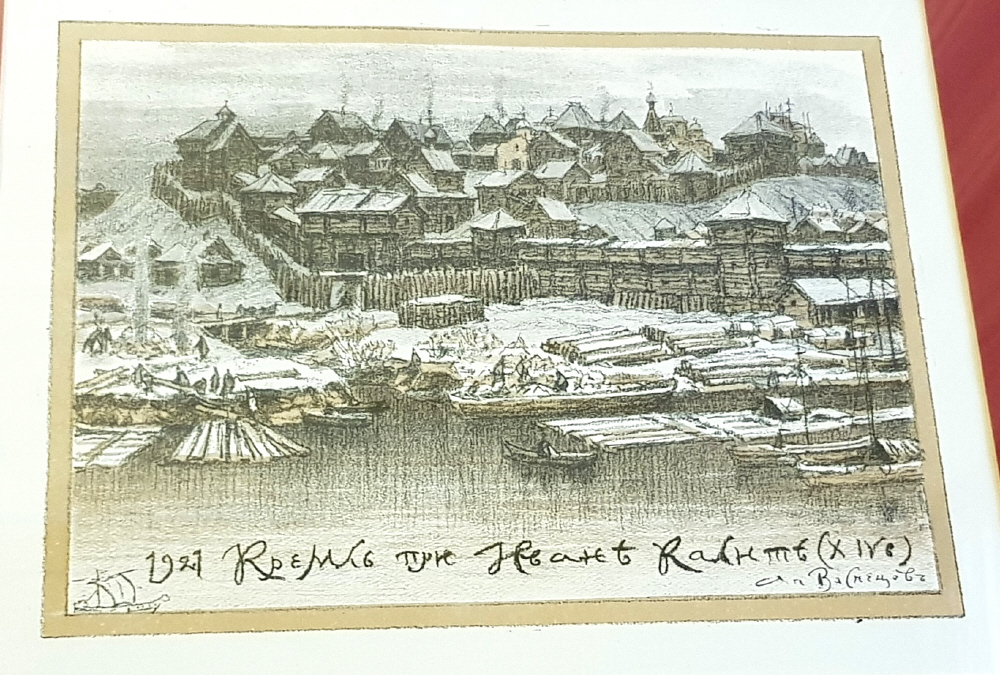 1921 Кремль при Иванѣ Калитѣ (XIVв)
Ап Васнецовъ